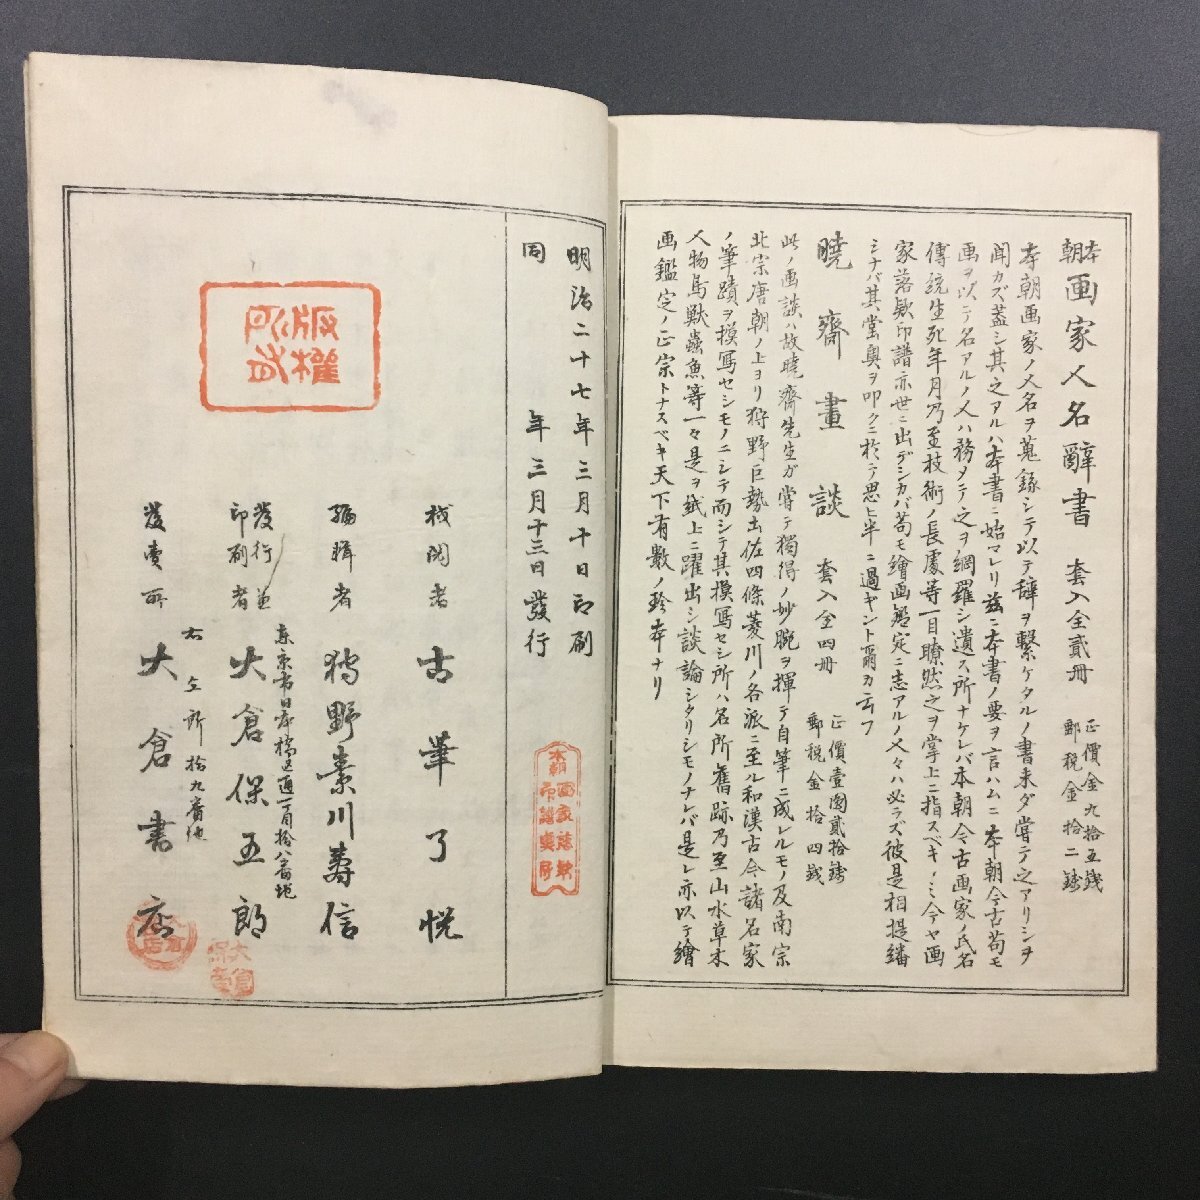 本朝画家人名辭書 套入全貳冊 正價金九拾五錢 郵税金拾二錢
本朝画家ノ人名ヲ蒐録シテ以テ辞ヲ繋ケタルノ書未ダ嘗テ之アリシヲ
聞カズ蓋シ其之アルハ本書ニ始マレリ茲ニ本書ノ要ヲ言ハムニ本朝今古苟モ
画ヲ以テ名アルノ人ハ務メテ之ヲ網羅シ遺ス所ナケレバ本朝今古画家ノ氏名
傳統生死年月乃至技術ノ長處等一目瞭然之ヲ掌上ニ指スベキノミ今ヤ画
家落欵印譜亦世ニ出デシカバ苟モ繪画鑑定ニ志アルノ人々ハ必ラズ彼是相提繙
ミナバ其堂奥ヲ叩クニ於テ思ヒ半ニ過ギント爾カ云フ
暁齋畫談 套入全四冊 正價壹圓貳拾錢 郵税金拾四錢
此ノ画談ハ故暁齋先生ガ嘗テ獨得ノ妙腕ヲ揮テ自筆ニ成レルモノ及南宗
北宗唐朝ノ上ヨリ狩野巨勢土佐四條菱川ノ各派ニ至ル和漢古今諸名家
ノ筆蹟ヲ摸写セシモノニシテ而シテ其摸写セシ所ハ名所舊跡乃至山水草木
人物鳥獣蟲魚等一々是ヲ紙上ニ躍出シ談論シタリシモノナレバ是レ亦以テ繪
画鑑定ノ正宗トナスベキ天下有數ノ珍本ナリ
明治二十七年三月十日印刷
同 年三月十三日發行
本朝画家落款印譜奥附
校閲者 古筆了悦
編輯者 狩野素川壽信
東京市日本橋区通一丁目拾八番地
發行兼印刷者 大倉保五郎
右仝所拾九番地
發賣所 大倉書店
版權所有